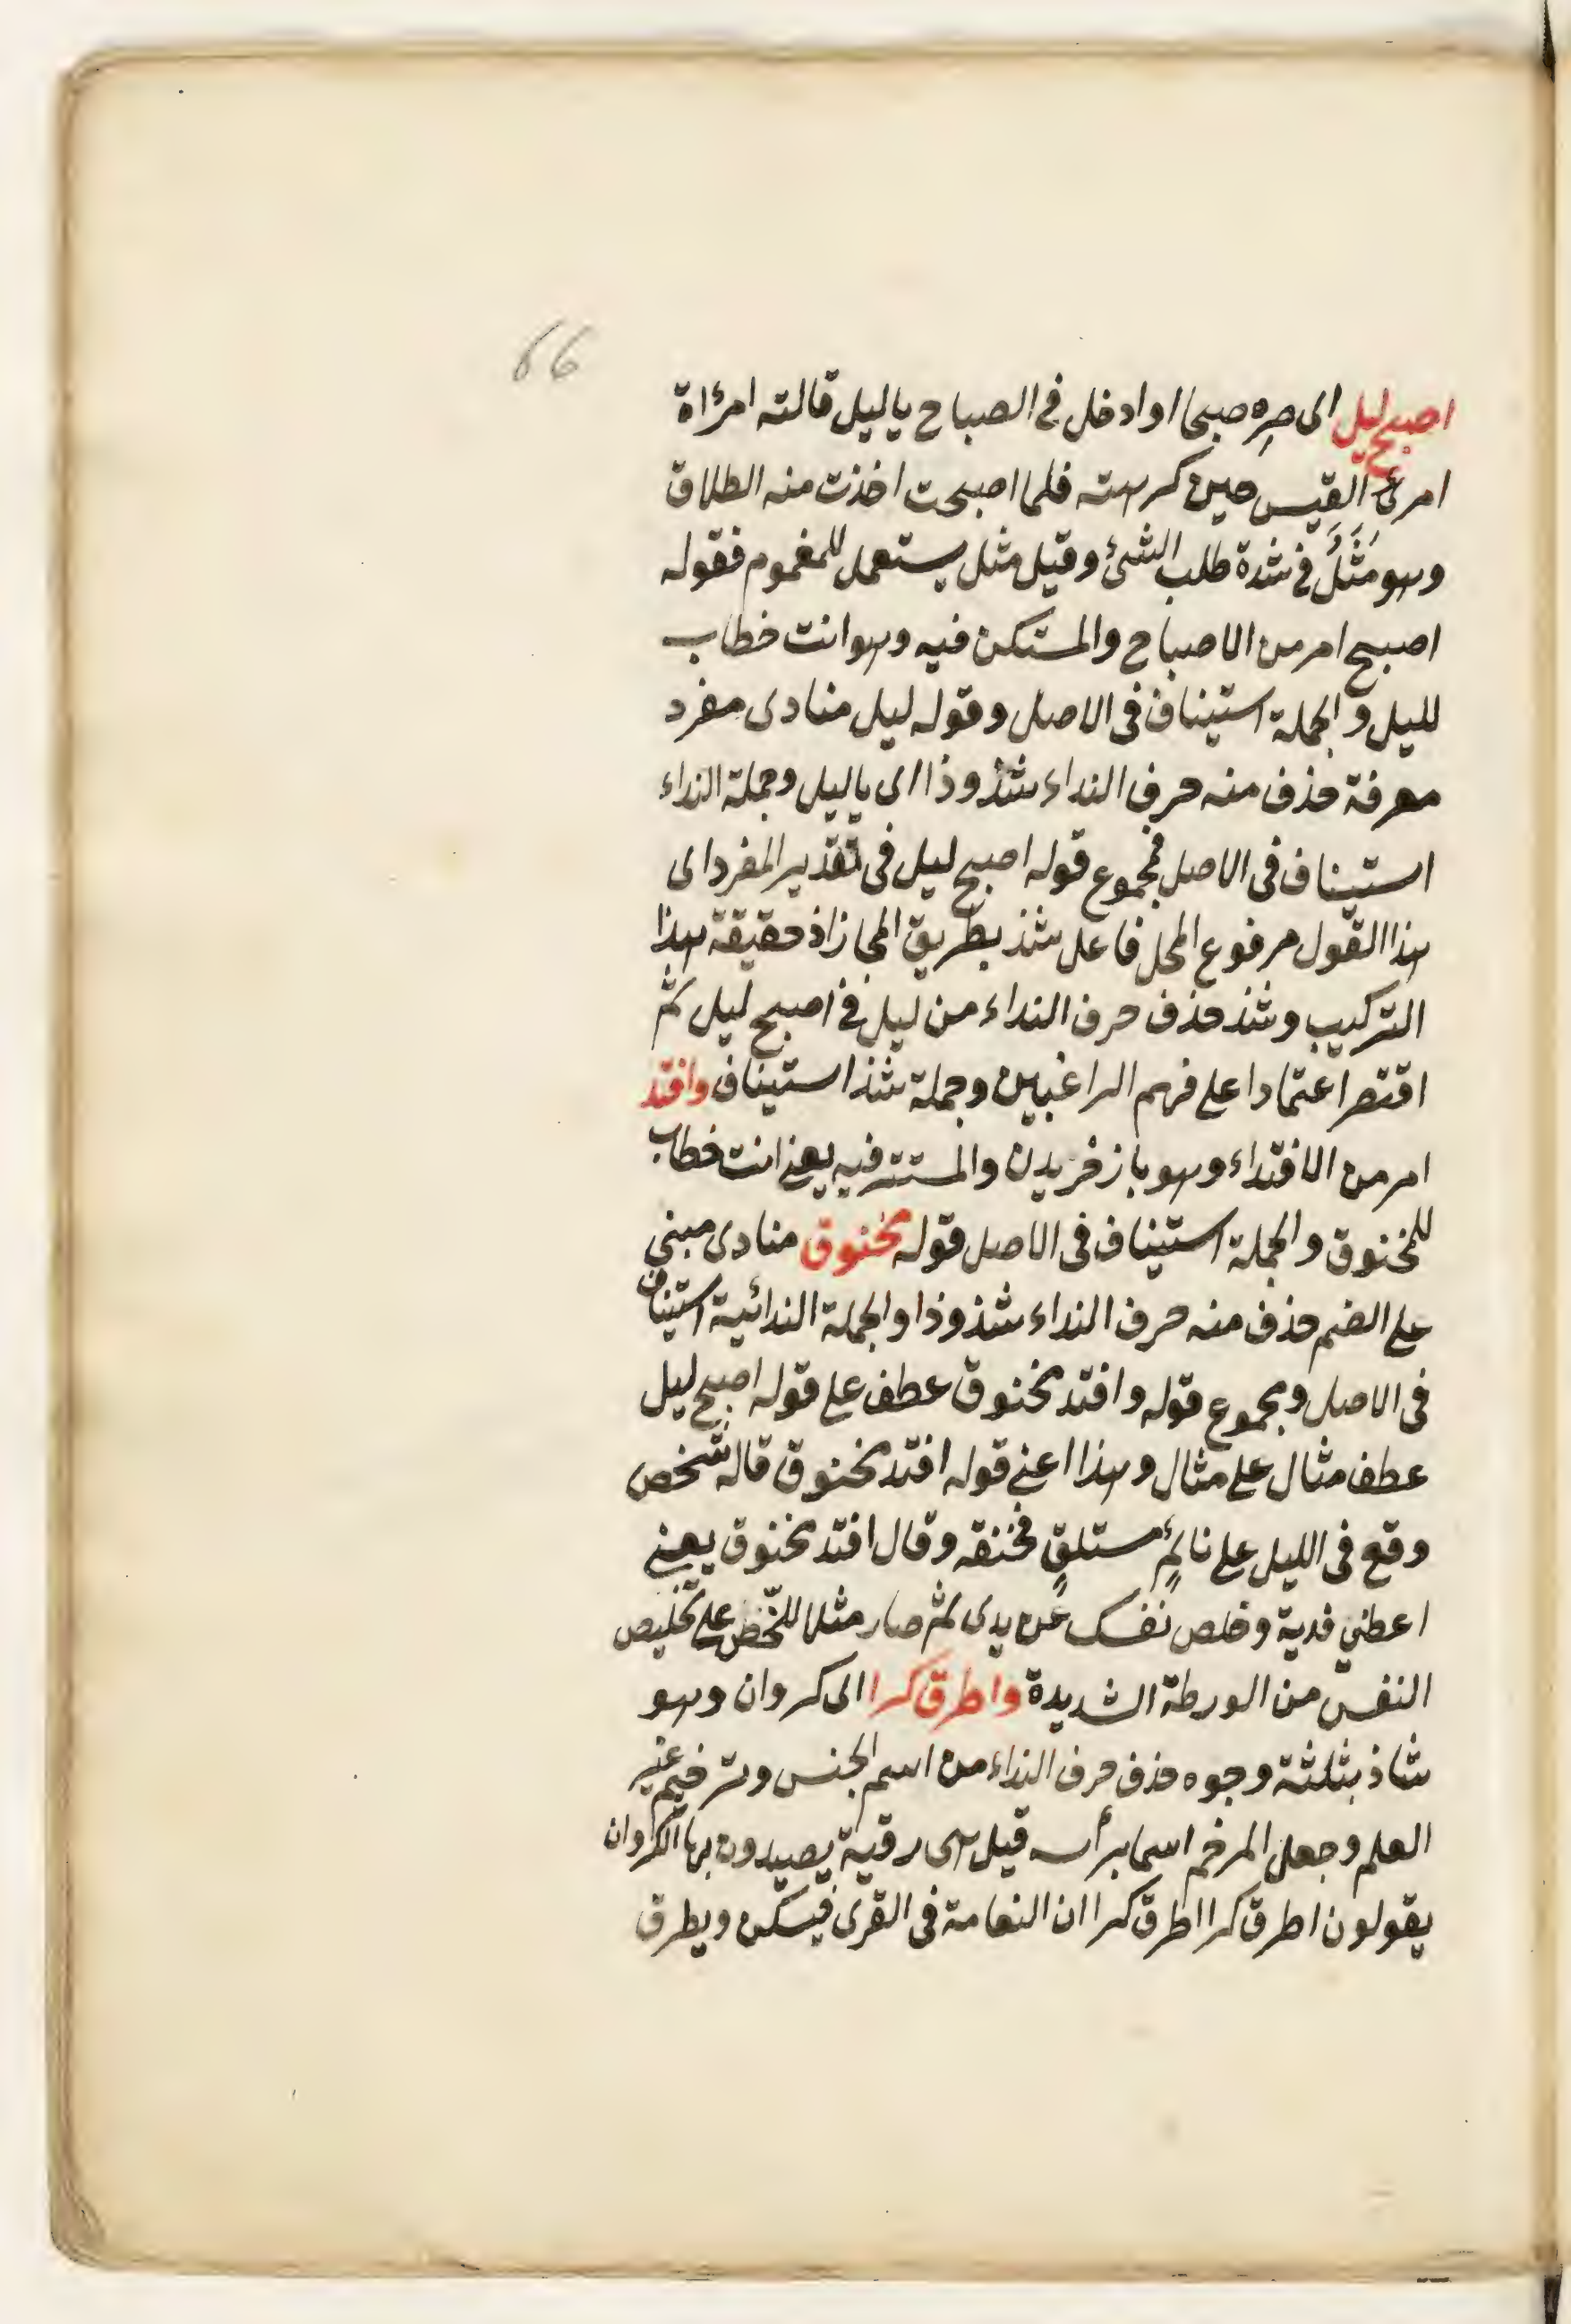 66
اصبح ليل اى صِره صبحا او ادخل فى الصباح يا ليل قالته امرأة
امرئ القيس حين كرهته فلما اصبحت اخذت منه الطلاق
وهو مَثَلٌ فى شدة طلب الشئ وقيل مثل يستعمل للمغموم فقوله
اصبح امر من الاصباح والمستكن فيه وهو انت خطاب
لليل والجملة استيناف فى الاصل وقوله ليل منادى مفرد
معرفة حذف منه حرف النداء شذوذا اى يا ليل وجملة النداء
استيناف فى الاصل فمجموع قوله اصبح ليل فى تقدير المفرد اى
هذا القول مرفوع المحل فاعل شذ بطريق المجاز اذ حقيقة هذا
التركيب وشذ حذف حرف النداء من ليل فى اصبح ليل ثم
اقتصر اعتمادا على فهم الراغبين وجملة شذ استيناف وافتد
امر من الافتداء وهو باز خريدن والمستتر فيه يعنى انت خطاب
للمخنوق والجملة استيناف فى الاصل قوله مخنوق منادى مبنى
على الضم حذف منه حرف النداء شذوذا والجملة الندائية استيناف
فى الاصل ومجموع قوله وافتد مخنوق عطف على قوله اصبح ليل
عطف مثال على مثال وهذا اعنى قوله افتد مخنوق قاله شخص
وقع فى الليل على نائمٍ مستلقٍ فخنقه وقال افتد مخنوق يعنى
اعطنى فدية وخلص نفسك عن يدى ثم صار مثلا للحضّ على تخليص
النفس من الورطة الشديدة واطرق كرا اى كروان وهو
شاذ بثلثة وجوه حذف حرف النداء من اسم الجنس وترخيم غير
العلم وجعل المرخم اسما برأسه قيل هى رقية يصيدون بها الكروان
يقولون اطرق كرا اطرق كرا ان النعامة فى القرى فيسكن ويطرق